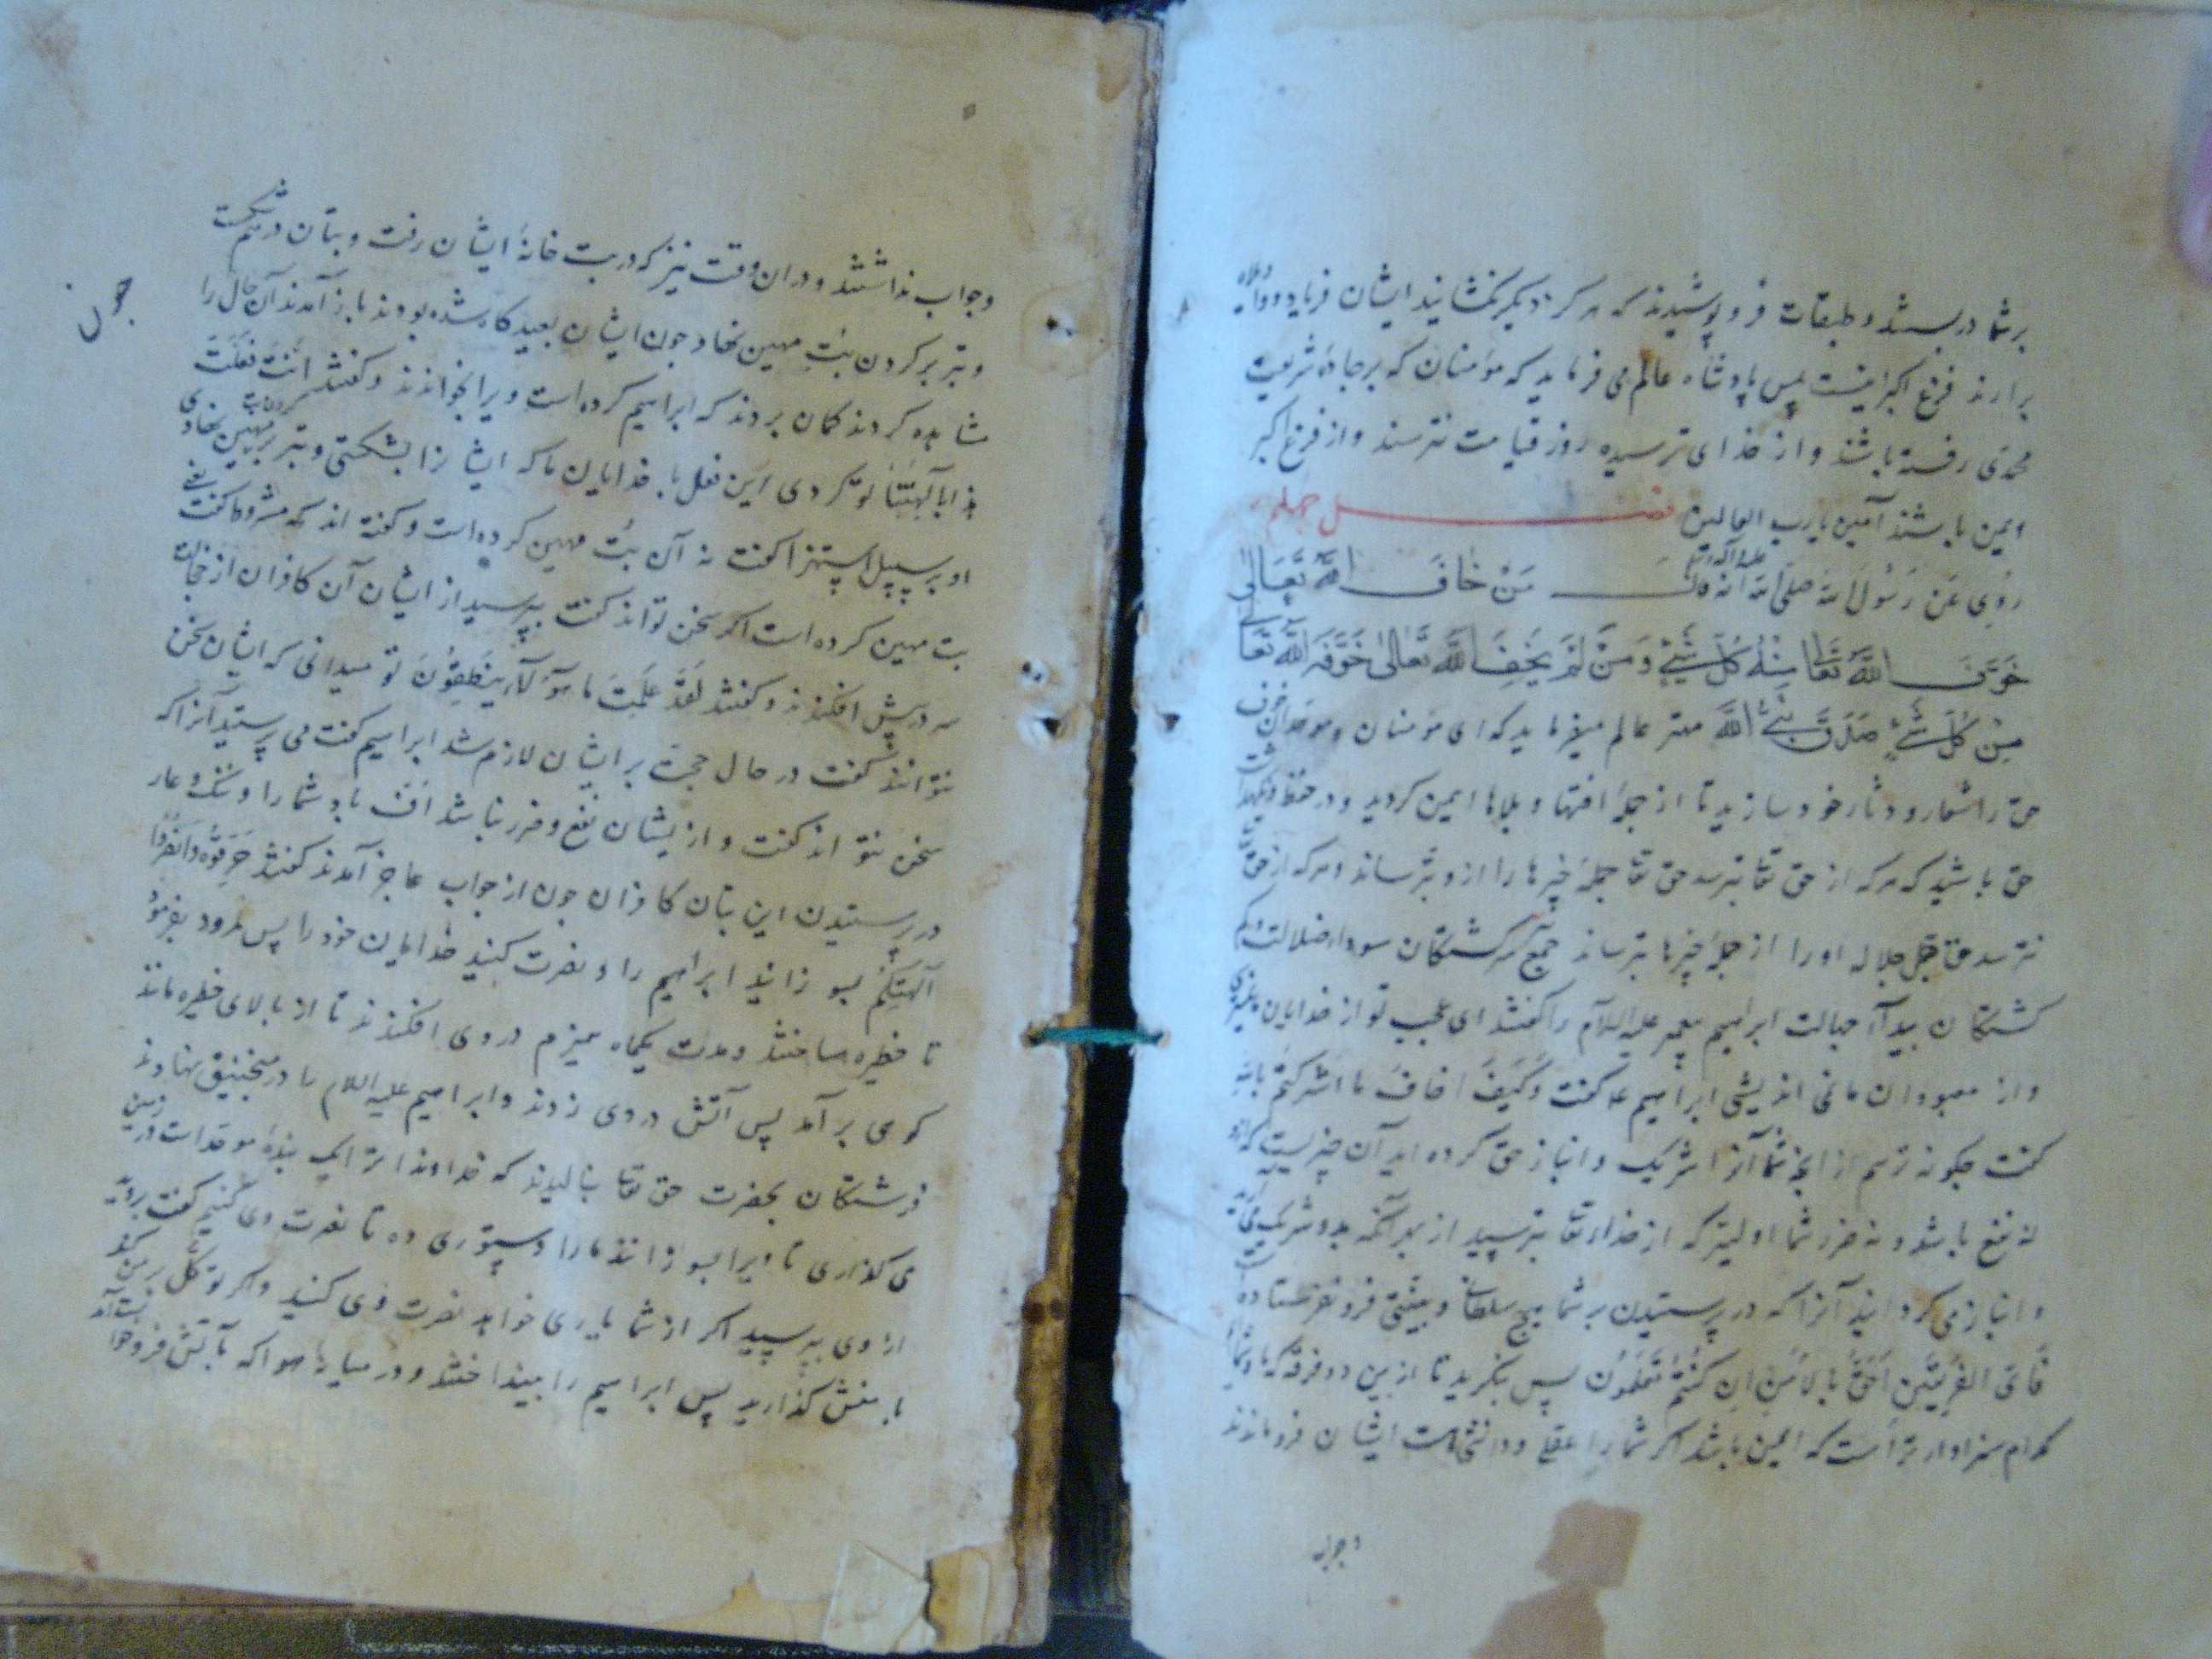 بر شما در بستند و طبقات فرو پوشیدند که هرکز دیکر نکشانید ایشان فریاد و واویلاه
برارند فزع اکبر اینست پس پادشاه عالم می فرماید که مؤمنان که بر جادۀ شریعت
محمدی رفته باشند و از خدای ترسیده روز قیامت نترسند و از فزع اکبر
ایمن باشند آمین یارب العالمین فصل چهلم
رُوِیَ عَن رَسُولُ الله صلّی الله علیه وآله وسلم انه قال مَنْ خَافَ اللهَ تَعَالی
خَوَّفَ اللهُ تَعَا مِنْهُ كُلَّ شَيْءٍ وَمَنْ لَمْ يَخَفِ اللهَ تَعَالٰى خَوَّفَهُ اللهُ تَعَا
مِنْ كُلِّ شَيْءٍ صَدَقَ نَبِيُّ الله مهتر عالم میفرماید که ای مؤمنان و موحدان خوف
حق را شعار و دثار خود سازید تا از جملۀ افتها و بلاها ایمن کردید و در حفظ و نکهداشت
حق باشید که هر که از حق تعا بترسد حق تعا جملۀ چیزها را ازو بترساند و هر که از حق تعا
نترسد حق جل جلاله او را از جملۀ چیزها بترساند جمع سرکشتکان سوداء ضلالت و کم
کشتکان بیداء جهالت ابراهیم پیغمبر علیه السلام را کفتند ای عجب تو از خدایان نمی ترسی
و از معبودان ما نمی اندیشی ابراهیم ع کفت وَكَيْفَ اَخَافُ مَا اَشْرَكْتُمْ بالله
کفت چکونه ترسم از انچه شما آنرا شریک و انباز حق کرده اید آن چیزیست که ازو
نه نفع باشد و نه ضرر شما اولیتر که از خداء تعا بترسید از بهر آنکه بدو شریک می آرید
و انباز می کردانید آنرا که در پرستیدن بر شما هیچ سلطان و بینتی فرو نفرستاده است
فَاَيُّ الفَرِيقَيْنِ اَحَقُّ بِالاَمْنِ اِن كُنْتُمْ تَعْلَمُونَ پس بنکرید تا ازین دو فرقه که ما و شماایم
کدام سزاوارتر است که ایمن باشد اکر شما را عقل و دانشی هست ایشان فرو ماندند
و جواب
و جواب نداشتند و دران وقت نیز که در بت خانۀ ایشان رفت و بتان در هم شکست
و تبر بر کردن بت مهین نهاد چون ایشان بعید کاه شده بودند باز آمدند آن حال را
مشاهده کردند کمان بردند که ابراهیم کرده است ویرا بخواندند و کفتند اَاَنْتَ فَعَلْتَ
هذا بآلِهَتِنَا تو کردی این فعل با خدایان ما که ایشانرا بشکستی و تبر بر کردن بت مهین نهادی
او بر سبیل استهزا کفت نه آن بت مهین کرده است و کفته اند که مشروط کفت یعنی
بت مهین کرده است اکر سخن تواند کفت بپرسید از ایشان آن کافران از خجالت
سر در پیش افکندند و کفتند لَقَدْ عَلِمْتَ مَا هٰؤُلَاءِ يَنْطِقُونَ تو میدانی که ایشان سخن
نتوانند کفت در حال حجت بر ایشان لازم شد ابراهیم کفت می پرستید آنرا که
سخن نتواند کفت و ازیشان نفع و ضرر نباشد اُفّ باد شما را و ننک و عار
در پرستیدن این بتان کافران چون از جواب عاجز آمدند کفتند حَرِّقُوهُ وَانْصُرُوا
آلِهَتَكُمْ بسوزانید ابراهیم را و نصرت کنید خدایان خود را پس نمرود بفرمود
تا حظیره ساختند و مدت یکماه هیزم در وی افکندند تا از بالای حظیره مانند
کوهی برآمد پس آتش در وی زدند و ابراهیم علیه السلام را در منجنیق نهادند
فرشتکان بحضرت حق تعا بنالیدند که خداوندا ترا یک بندۀ موحد است در زمین
می کذاری تا ویرا بسوزانند ما را دستوری ده تا نصرت وی کنیم کفت بروید
از وی بپرسید اکر از شما یاری خواهد نصرت وی کنید و اکر توکل بر من کند
با منش کذارید پس ابراهیم را بینداختند و در میانۀ هوا که بآتش فرو خواست آمد